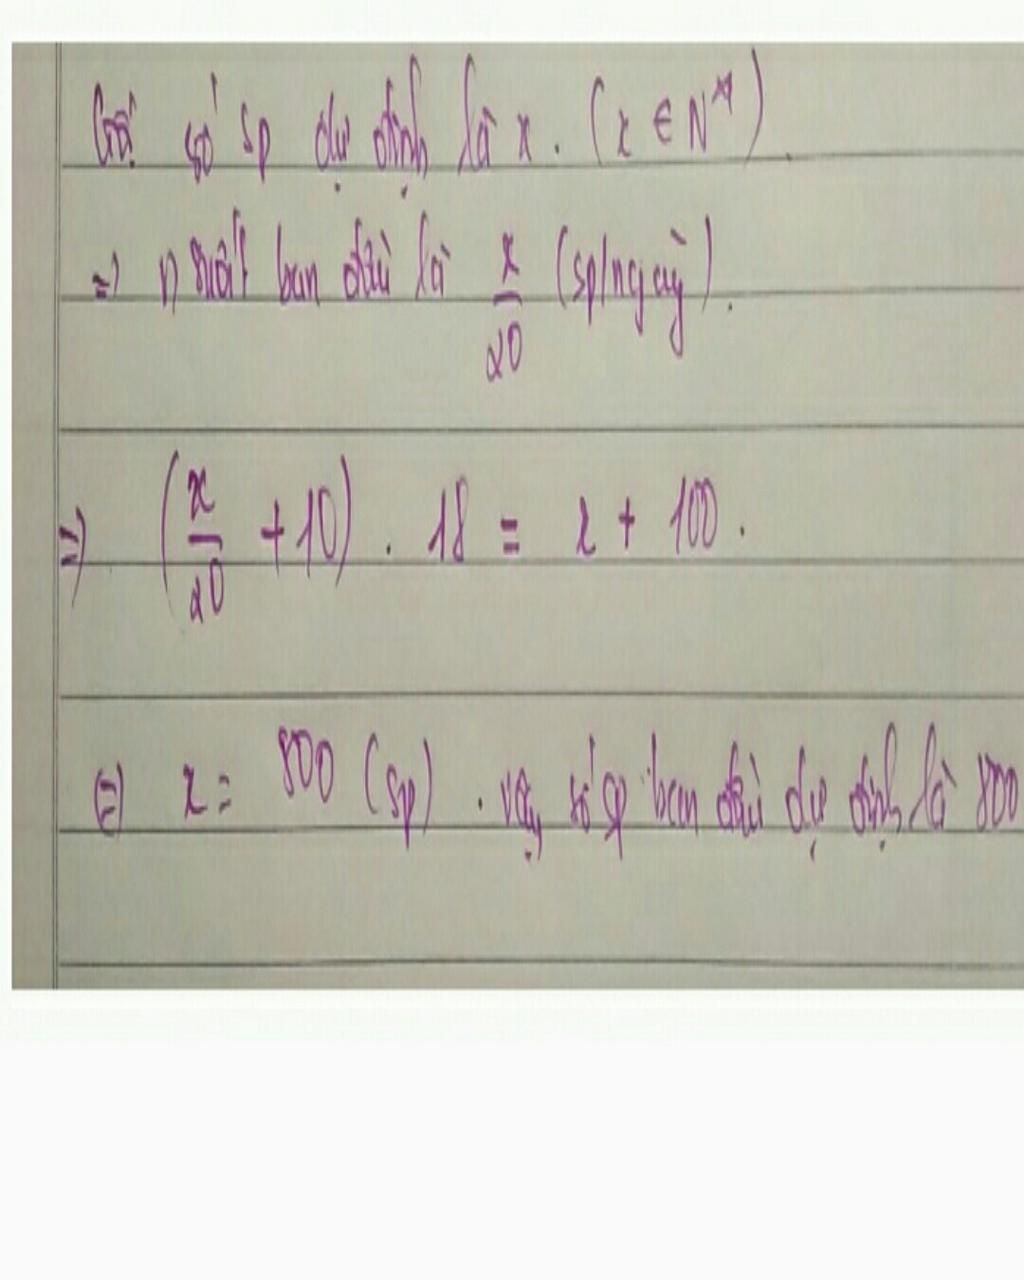 Gọi số sp dự định là x. (x ∈ N*).
=> n suất ban đầu là x/20 (sp/ngày).
=> (x/20 + 10) . 18 = x + 100.
<=> x = 800 (sp). vậy số sp ban đầu dự định là 800